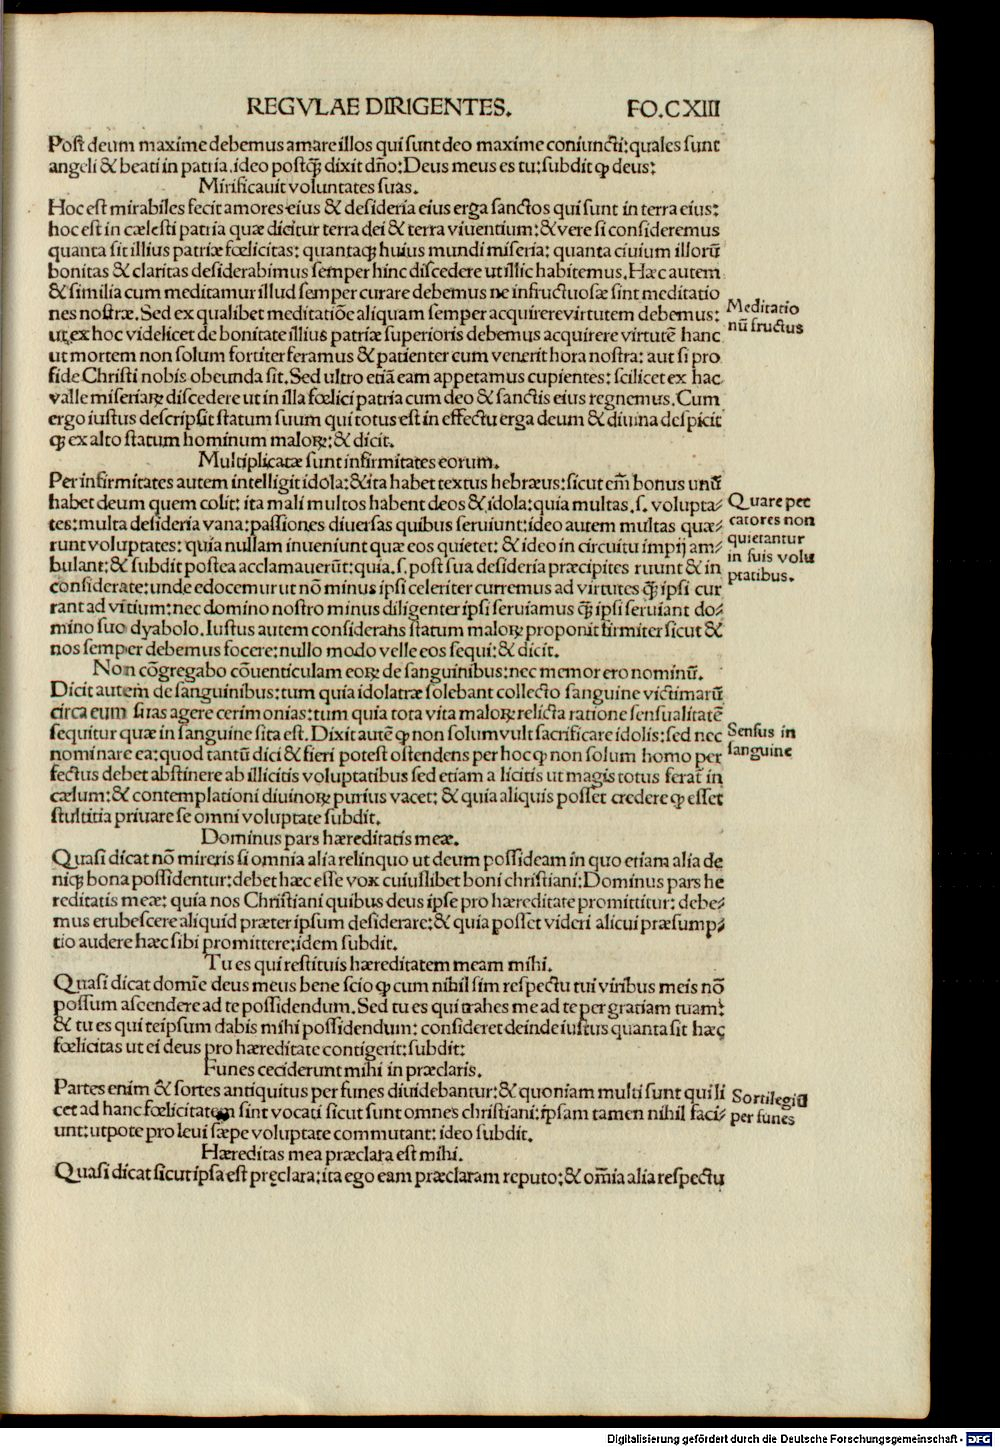 REGVLAE DIRIGENTES. FO.CXIII
Post deum maxime debemus amare illos qui sunt deo maxime coniuncti: quales sunt
angeli & beati in patria. ideo postq̃ dixit dño: Deus meus es tu: subdit ꝙ deus:
Mirificauit voluntates suas.
Hoc est mirabiles fecit amores eius & desideria eius erga sanctos qui sunt in terra eius:
hoc est in cælesti patria quæ dicitur terra dei & terra viuentium: & vere si consideremus
quanta sit illius patriæ fœlicitas: quantaqꝫ huius mundi miseria: quanta ciuium illorũ
bonitas & claritas desiderabimus semper hinc discedere ut illic habitemus. Hæc autem
& similia cum meditamur illud semper curare debemus ne infructuosæ sint meditatio
nes nostræ. Sed ex qualibet meditatiõe aliquam semper acquirere virtutem debemus:
ut ex hoc videlicet de bonitate illius patriæ superioris debemus acquirere virtutẽ hanc
ut mortem non solum fortiter feramus & patienter cum venerit hora nostra: aut si pro
fide Christi nobis obeunda sit. Sed ultro etiã eam appetamus cupientes: scilicet ex hac
valle miseriaꝝ discedere ut in illa fœlici patria cum deo & sanctis eius regnemus. Cum
ergo iustus descripsit statum suum qui totus est in effectu erga deum & diuina despicit
ꝙ ex alto statum hominum maloꝝ: & dicit.
Multiplicatæ sunt infirmitates eorum.
Per infirmitates autem intelligit idola: & ita habet textus hebræus: sicut em̃ bonus unũ
habet deum quem colit: ita mali multos habent deos & idola: quia multas. s. volupta⸗
tes: multa desideria vana: passiones diuersas quibus seruiunt: ideo autem multas quæ⸗
runt voluptates: quia nullam inueniunt quæ eos quietet: & ideo in circuitu impij am⸗
bulant: & subdit postea acclamauerũt: quia. s. post sua desideria præcipites ruunt & in
considerate: unde edocemur ut nõ minus ipsi celeriter curremus ad virtutes q̃ ipsi cur
rant ad vitium: nec domino nostro minus diligenter ipsi seruiamus q̃ ipsi seruiant do⸗
mino suo dyabolo. Iustus autem considerans statum maloꝝ proponit firmiter sicut &
nos semper debemus focere: nullo modo velle eos sequi: & dicit.
Non cõgregabo cõuenticulam eoꝝ de sanguinibus: nec memor ero nominũ.
Dicit autem de sanguinibus: tum quia idolatræ solebant collecto sanguine victimarũ
circa eum suas agere cerimonias: tum quia tota vita maloꝝ relicta ratione sensualitatẽ
sequitur quæ in sanguine sita est. Dixit autẽ ꝙ non solum vult sacrificare idolis: sed nec
nominare ea: quod tantũ dici & fieri potest ostendens per hoc ꝙ non solum homo per
fectus debet abstinere ab illicitis voluptatibus sed etiam a licitis ut magis totusferat̃ in
cælum: & contemplationi diuinoꝝ purius vacet: & quia aliquis posset credere ꝙ esset
stultitia priuare se omni voluptate subdit.
Dominus pars hæreditatis meæ.
Quasi dicat nõ mireris si omnia alia relinquo ut deum possideam in quo etiam alia de
niqꝫ bona possidentur: debet hæc esse vox cuiuslibet boni christiani: Dominus pars he
reditatis meæ: quia nos Christiani quibus deus ipse pro hæreditate promittitur: debe⸗
mus erubescere aliquid præter ipsum desiderare: & quia posset videri alicui præsump⸗
tio audere hæc sibi promittere: idem subdit.
Tu es qui restituis hæreditatem meam mihi.
Quasi dicat domĩe deus meus bene scio ꝙ cum nihil sim respectu tui viribus meis nõ
possum ascendere ad te possidendum. Sed tu es qui trahes me ad te per gratiam tuam:
& tu es qui teipsum dabis mihi possidendum: consideret deinde iustus quanta sit hæc
fœlicitas ut ei deus pro hæreditate contigerit: subdit:
Funes ceciderunt mihi in præclaris.
Partes enim & sortes antiquitus per funes diuidebantur: & quoniam multi sunt qui li
cet ad hanc fœlicitatem sint vocati sicut sunt omnes christiani: ipsam tamen nihil faci⸗
unt: utpote pro leui sæpe voluptate commutant: ideo subdit.
Hæreditas mea præclara est mihi.
Quasi dicat sicut ipsa est pręclara: ita ego eam præclaram reputo: & om̃ia alia respectu
Meditatio
nũ fructus
Quare pec
catores non
quietantur
in suis volu
ptatibus.
Sensus in
sanguine
Sortilegia
per funes
Digitalisierung gefördert durch die Deutsche Forschungsgemeinschaft - DFG